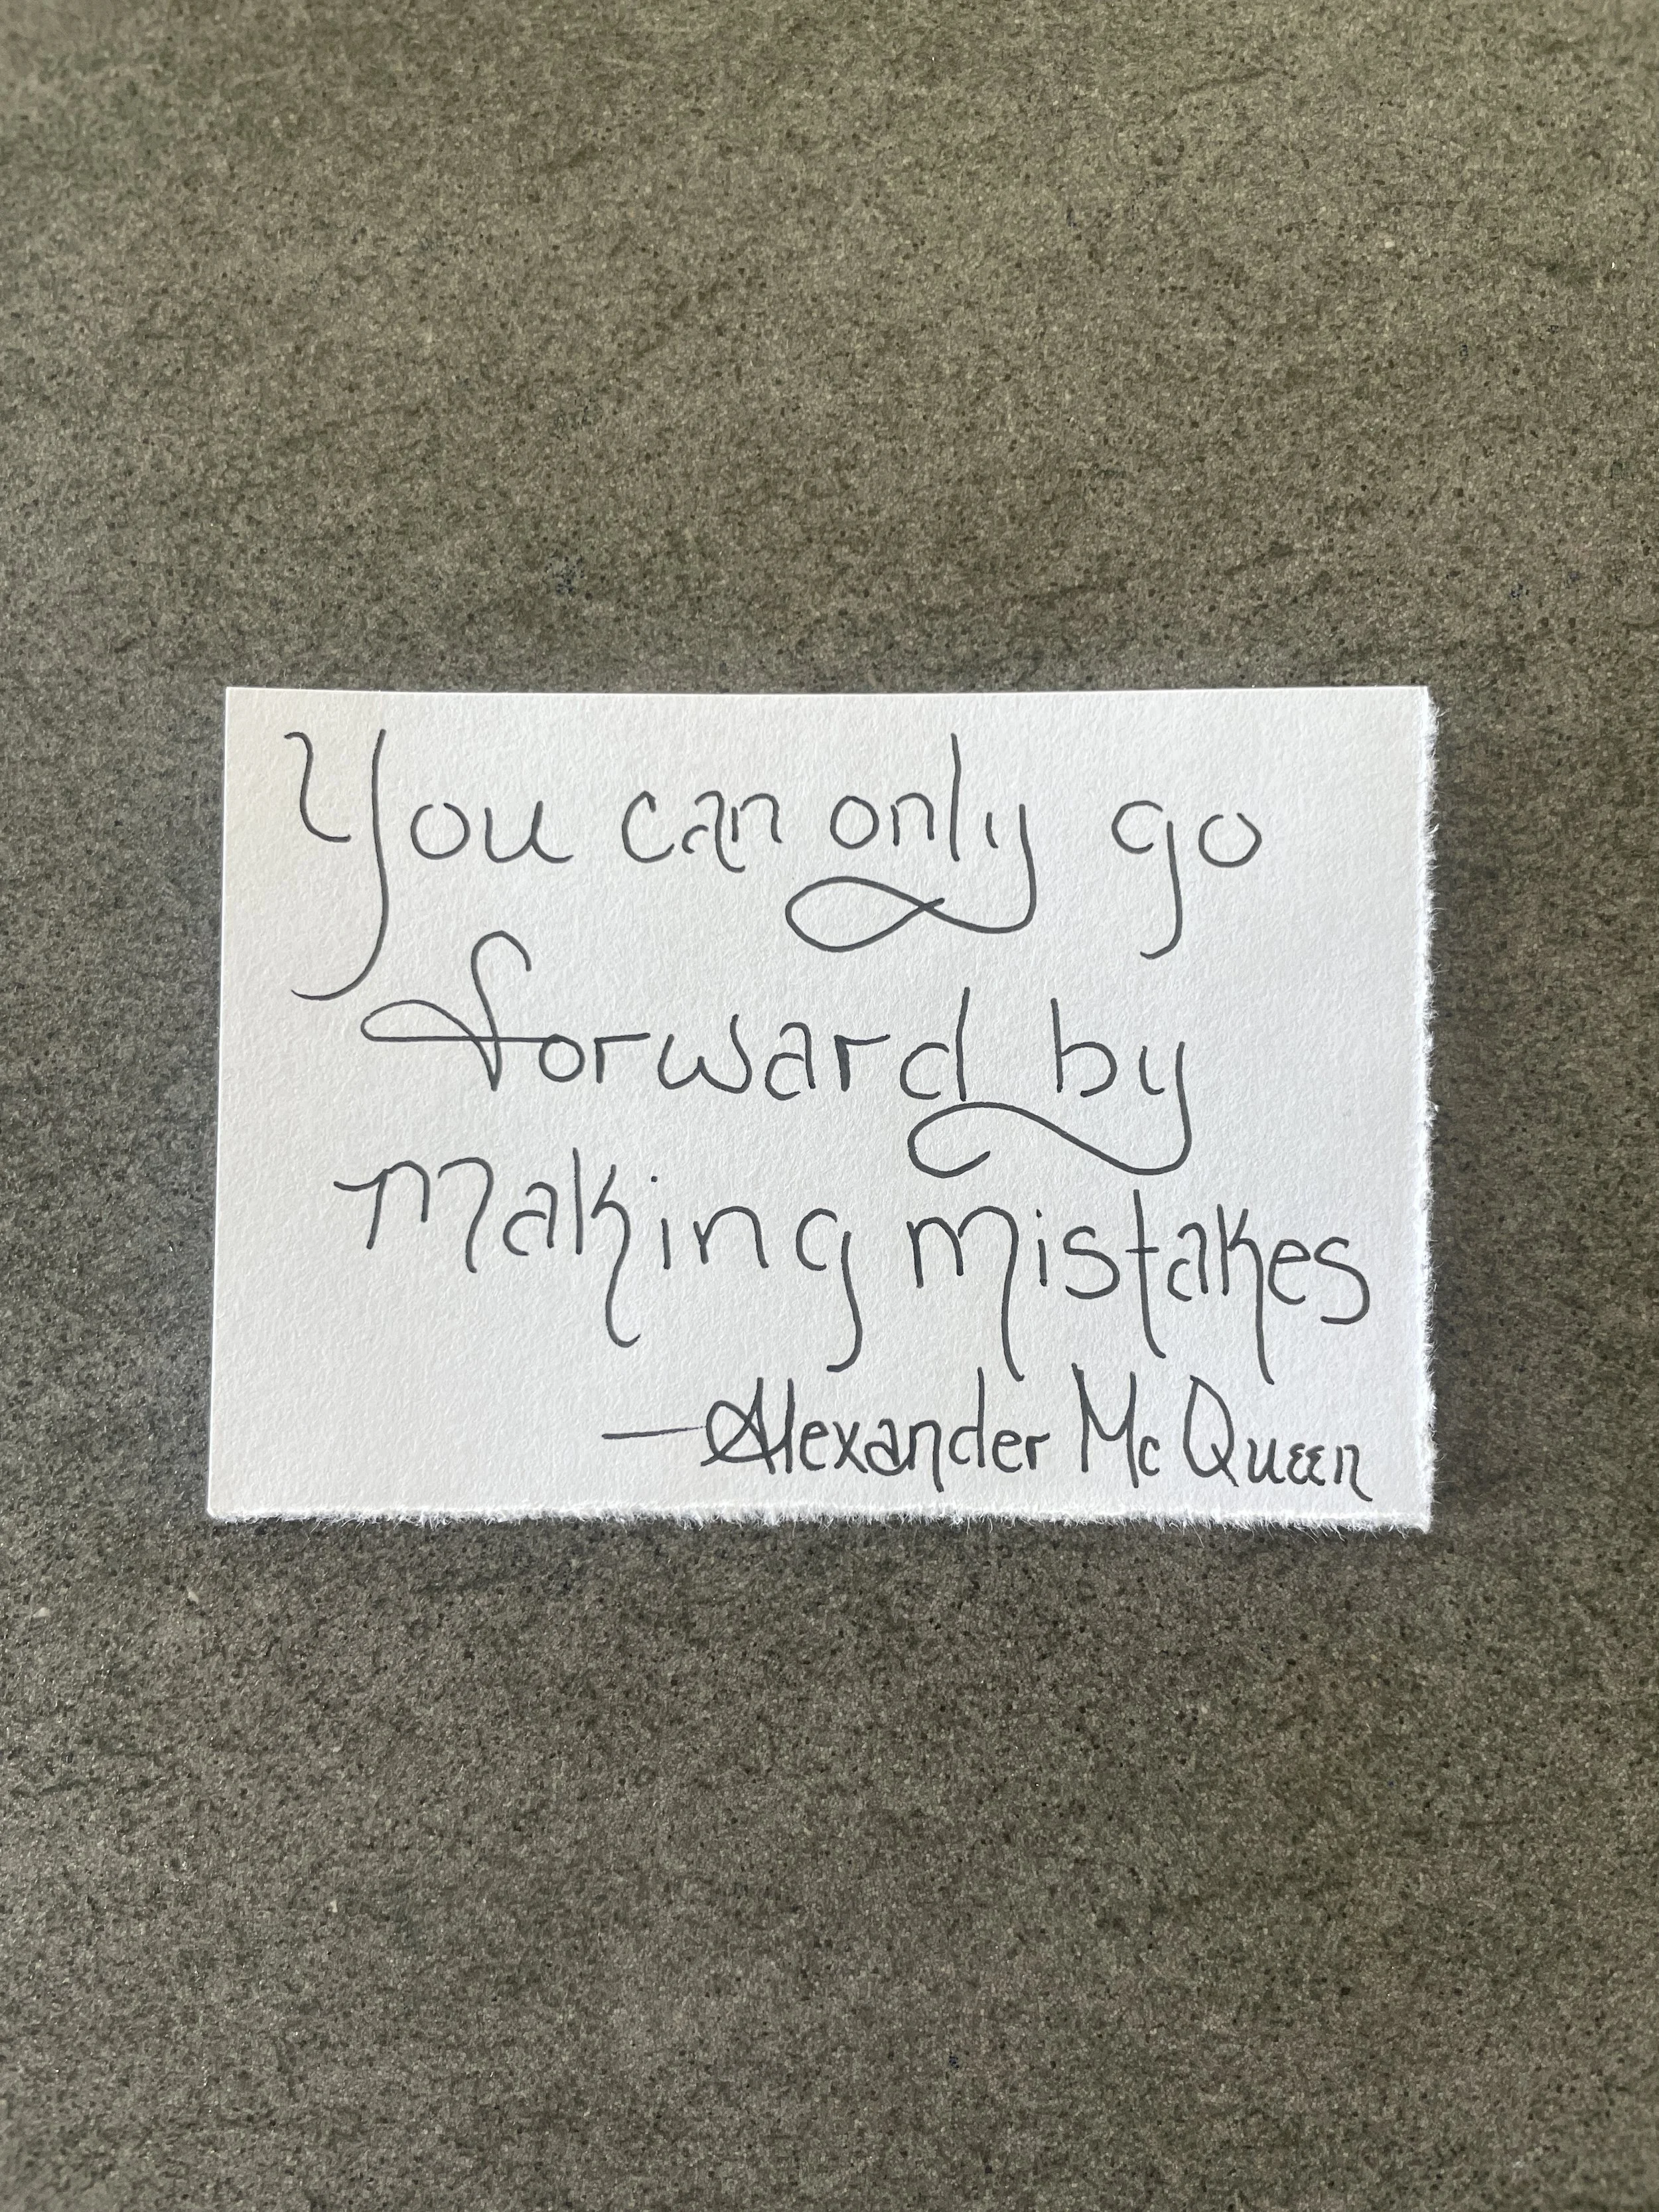 You can only go
forward by
making mistakes
—Alexander McQueen